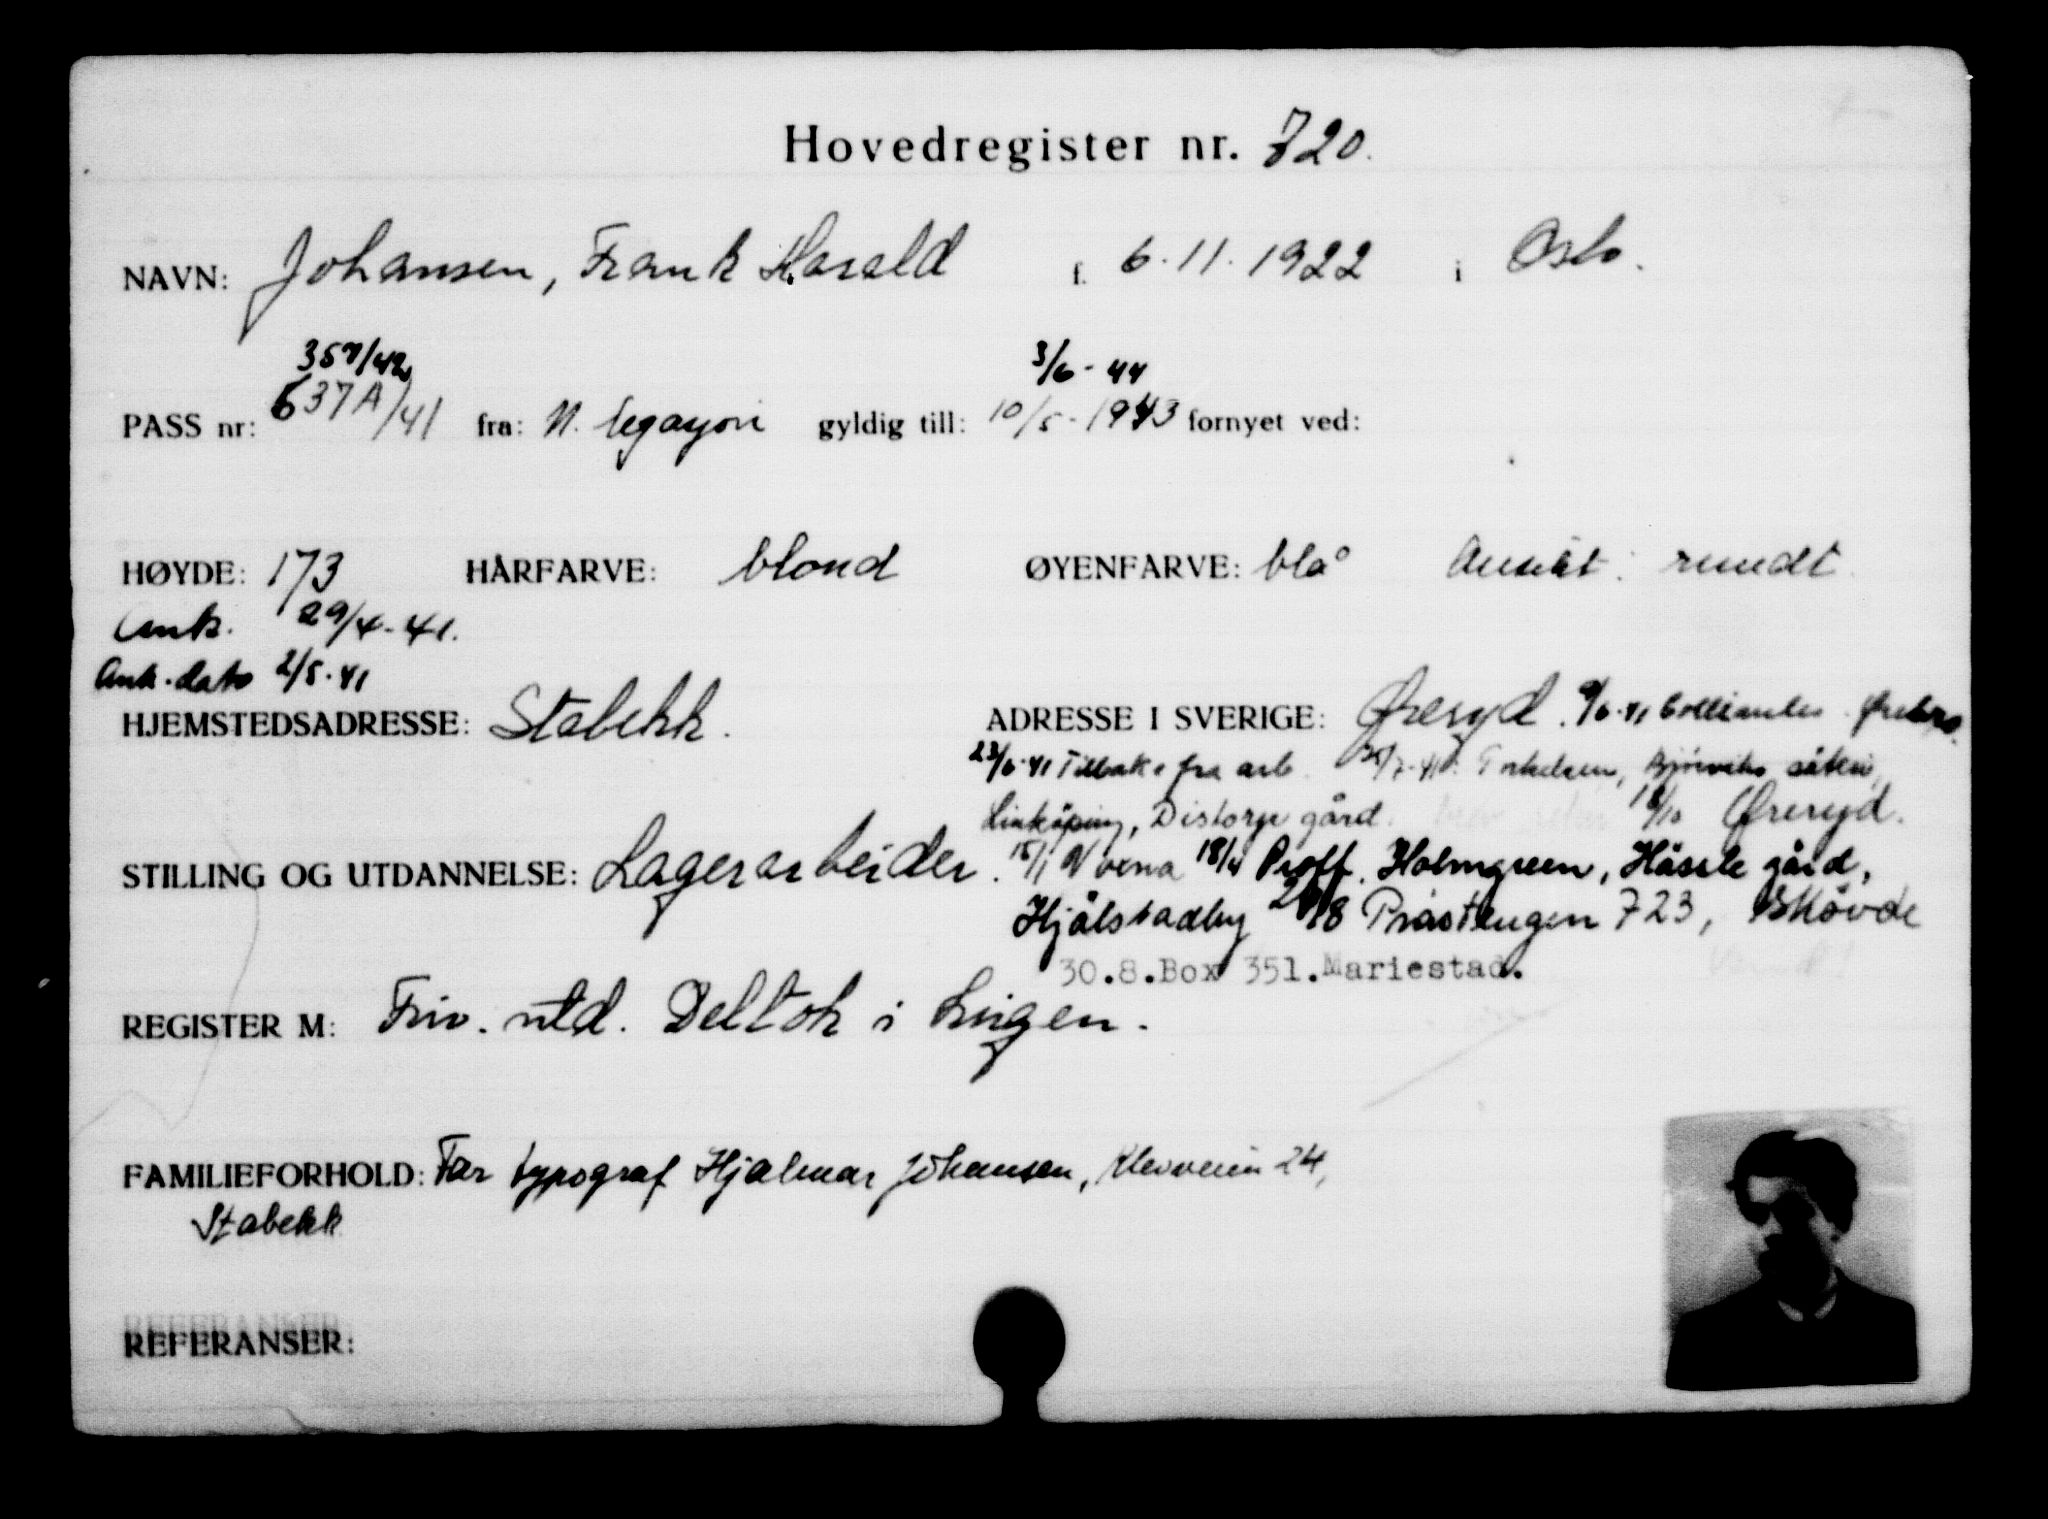 Hovedregister nr. 720.
NAVN: Johansen, Frank Harald f. 6.11.1922 i Oslo.
357/42 3/6-44
637A/41
PASS nr: fra: N. legasjon gyldig till: 10/5-1943 fornyet ved:
HØYDE: 173 HÅRFARVE: blond ØYENFARVE: blå Ansikt: rundt
Ank. 29/4-41.
Ank.dato 2/5.41
HJEMSTEDSADRESSE: Stabekk. ADRESSE I SVERIGE: Øreryd. 9/6.41 Ørebro.
23/6.41 Tilbake fra arb. /7-41: Torkelsen,
Linköping, Distorp gård. 18/10 Øreryd.
STILLING OG UTDANNELSE: Lagerarbeider. 15/1 Voxna 18/4 Holmgreen, Hässle gård,
Hjälstadby Prästengen 723, Skövde
30.8.Box 351.Mariestad.
REGISTER M: Friv. utd. Deltok i krigen.
FAMILIEFORHOLD: Far typograf Hjalmar Johansen, Klevveien 24,
Stabekk
REFERANSER: